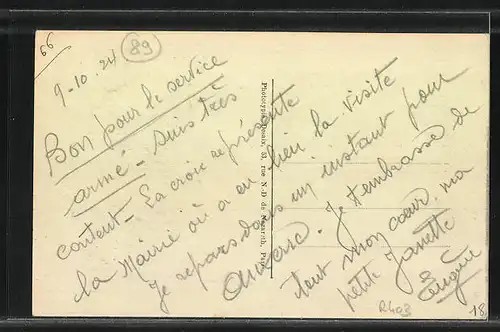 66
89
9-10-24
Bon pour le service
armé - suis très
content - La croix représente
la Mairie où a eu lieu la visite
Je repars dans un instant pour
Auxerre. Je t'embrasse de
tout mon cœur, ma
petite Janette
Phototypie Desaix, 53, rue N.-D de Nazareth, Paris
R403
18